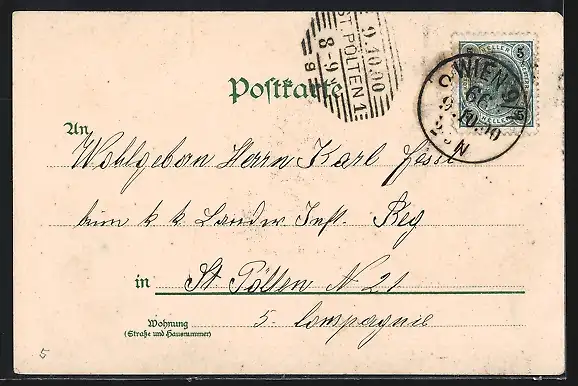 9.10.00
ST. PÖLTEN 1
8-9
5 HELLER 5
WIEN 9/5
66
9.10.00
2 N
Postkarte
An
Wohlgeborn Herrn Karl
beim k k Landw Inft. Reg
in St Pölten N 21
Wohnung 5. Compagnie
(Straße und Hausnummer)
5